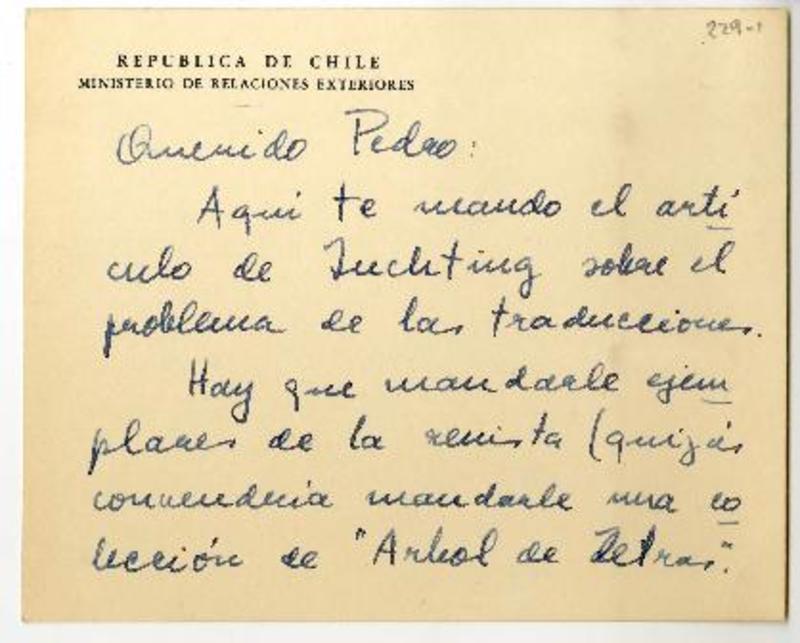 229-1
REPUBLICA DE CHILE
MINISTERIO DE RELACIONES EXTERIORES
Querido Pedro:
Aqui te mando el artí
culo de sobre el
problema de las traducciones.
Hay que mandarle ejem
plares de la revista (quizás
convendria mandarle una co
lección de "Arbol de Letras".